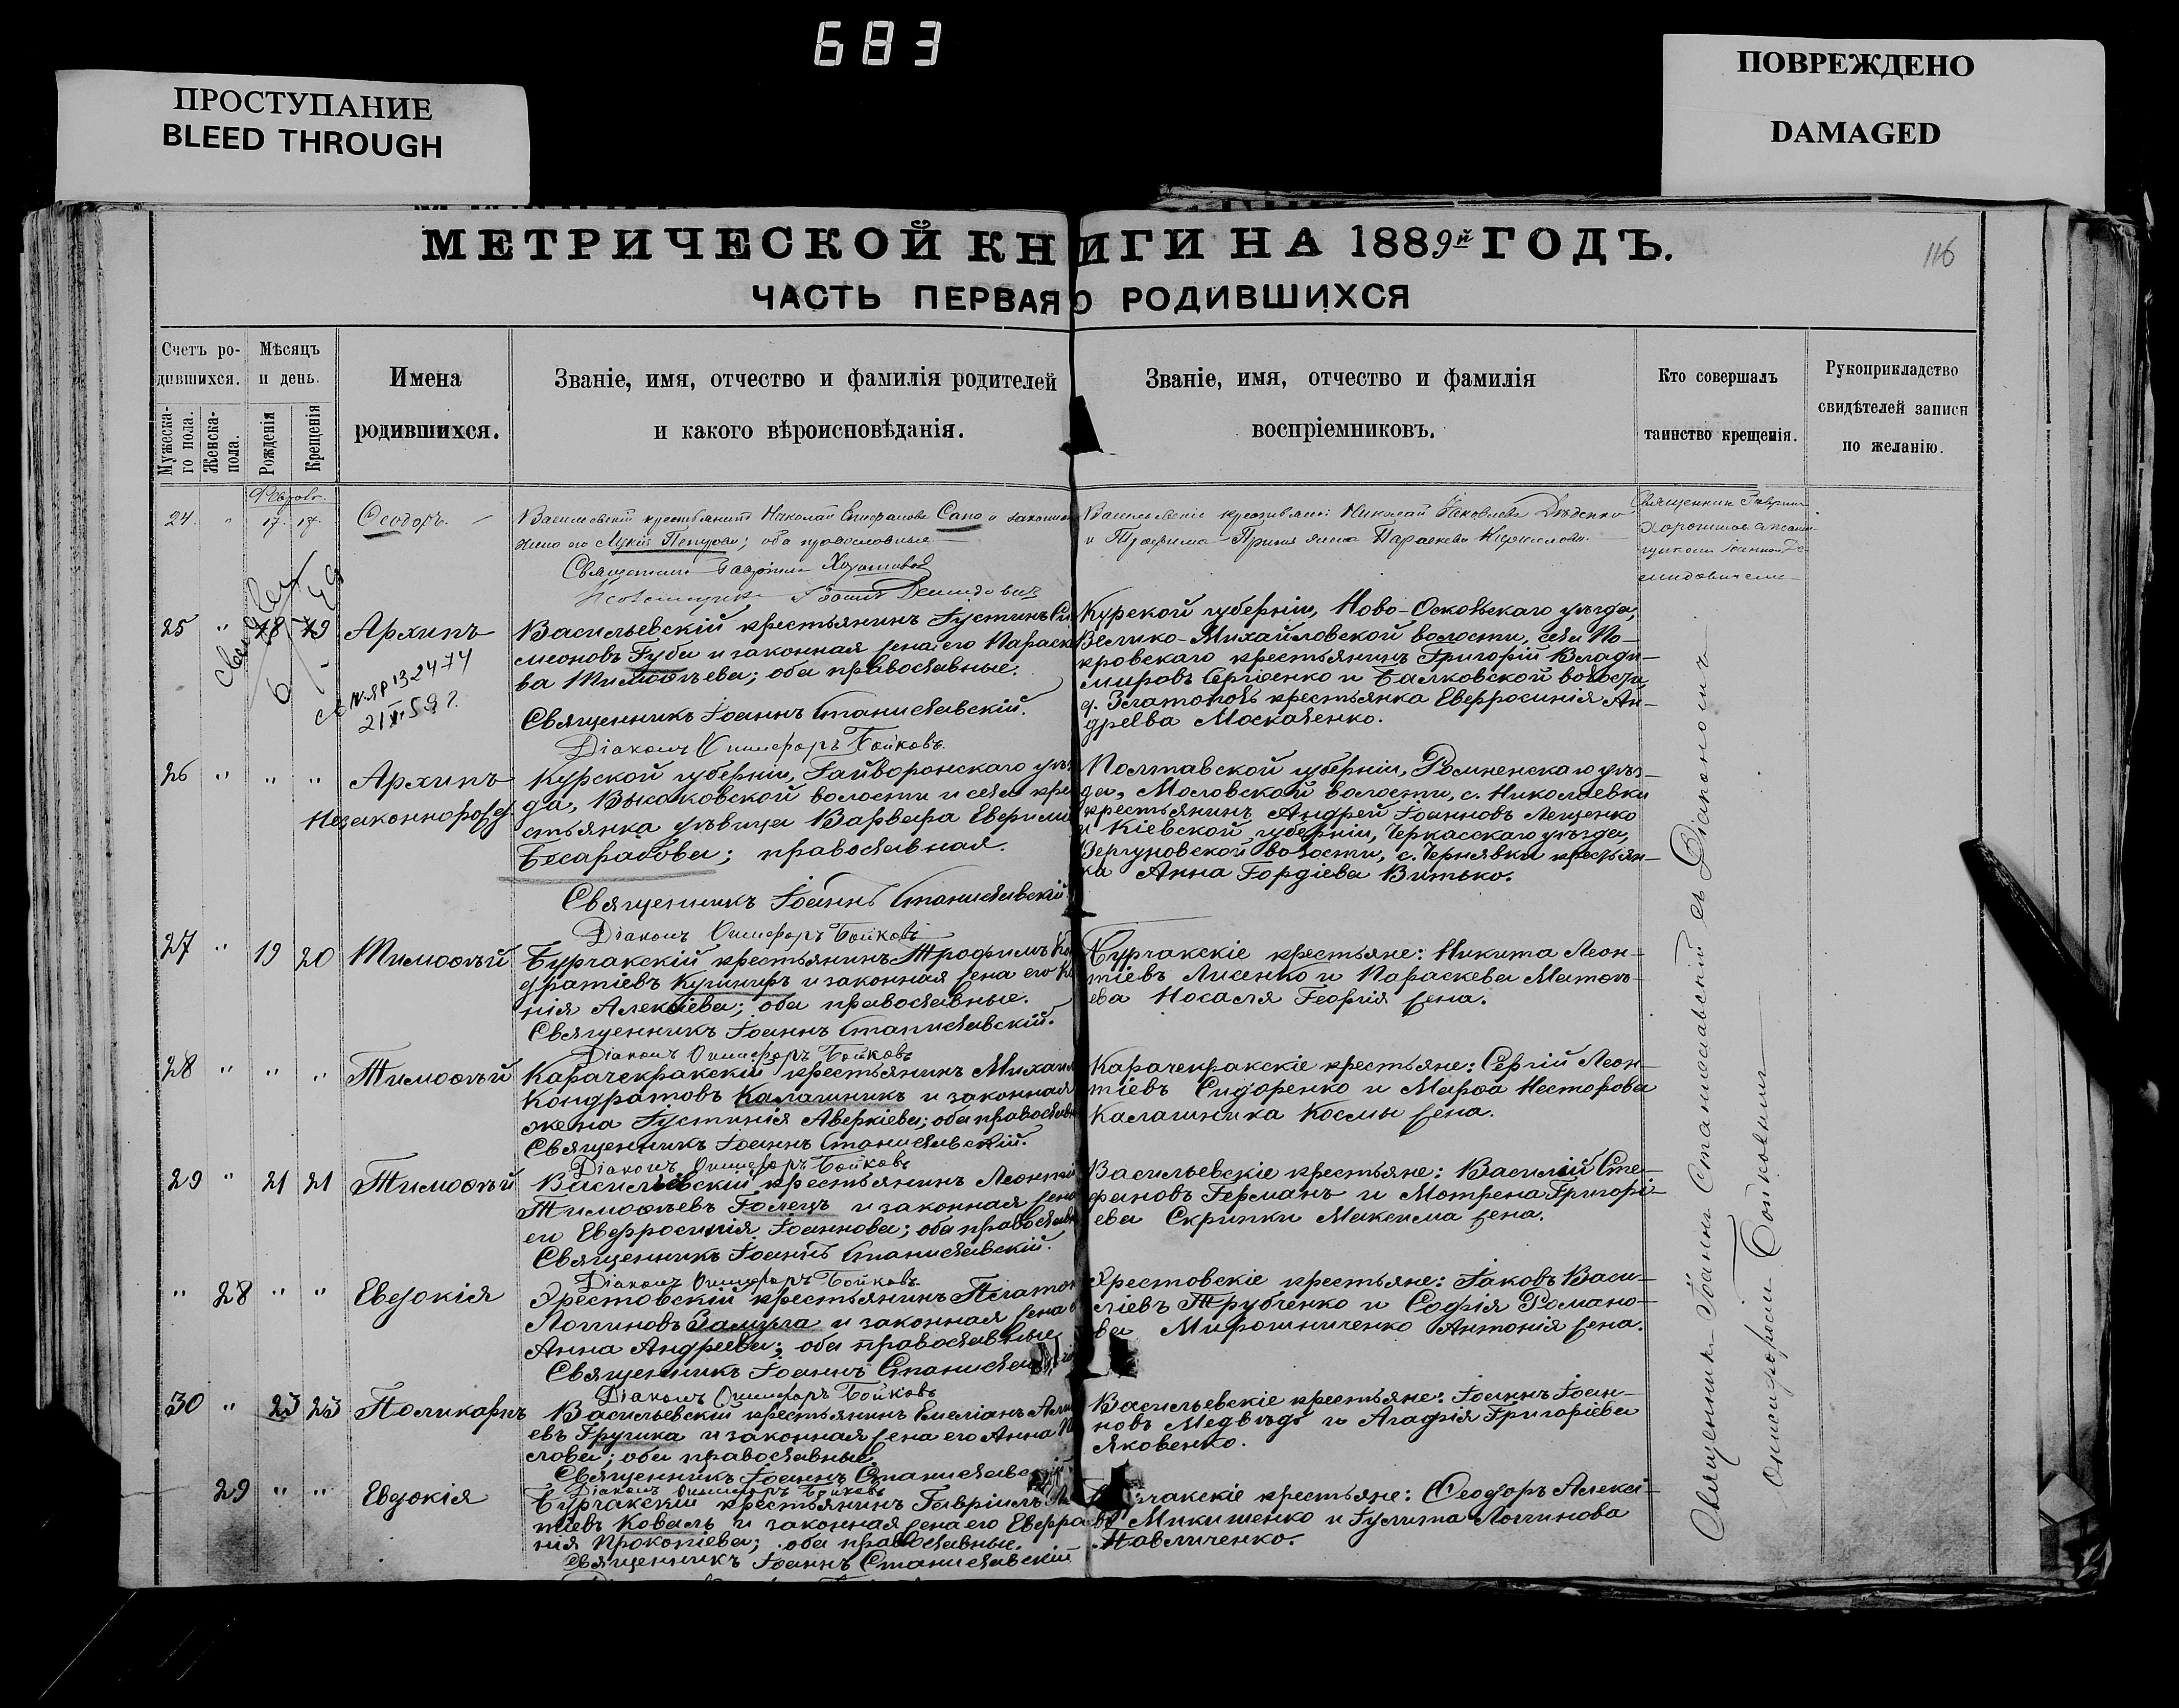 683
ПРОСТУПАНИЕ
BLEED THROUGH
ПОВРЕЖДЕНО
DAMAGED
МЕТРИЧЕСКОЙ КНИГИ НА 1889й ГОДЪ.
116
ЧАСТЬ ПЕРВАЯ О РОДИВШИХСЯ
Счетъ ро-
дившихся.
Мужеска-
го пола.
Женска-
пола.
Мѣсяцъ
и день.
Рожденія
Крещенія
Имена
родившихся.
Званіе, имя, отчество и фамилія родителей
и какого вѣроисповѣданія.
Званіе, имя, отчество и фамилія
воспріемниковъ.
Кто совершалъ
таинство крещенія.
Рукоприкладство
свидѣтелей записи
по желанію.
24. " 17. 17. Ѳеодоръ.
Васильевскій крестьянинъ Николай Сапо и законная
жена его Петрова; оба православные
Священникъ Гавріилъ
Іоаннъ Демидовичъ
Васильевскіе крестьяне: Николай Яковлевъ
и Параскева
Священникъ Гавріилъ
25 " 18 19 Архипъ
№ЯР 132474
21 XI 59г.
Васильевскій крестьянинъ Іустинъ Си
меоновъ Губа и законная жена его Параске
ва Тимоѳѣева; оба православные.
Священникъ Іоаннъ Станиславскій.
Діаконъ Онисифоръ Бойковъ.
Курской губерніи, Ново-Оскольскаго уѣзда,
Велико-Михайловской волости, села По-
кровскаго крестьянинъ Григорій Влади-
мировъ Сергіенко и Балковской волости,
д. Златополь крестьянка Евфросинія Ан-
дреева Москаленко.
26 " " " Архипъ
Незаконнорожд
Курской губерніи, Грайворонскаго уѣз
да, Высоковской волости и села кре
стьянка дѣвица Варвара Ефими
Бесарабова; православная.
Священникъ Іоаннъ Станиславскій.
Діаконъ Онисифоръ Бойковъ
Полтавской губерніи, Роменскаго уѣз-
да, волости, с. Николаевки
крестьянинъ Андрей Іоанновъ Лещенко
и Кіевской губерніи, Черкасскаго уѣзда,
волости, с. Чернявки крестьян-
ка Анна Гордіева Витько.
27 " 19 20 Тимоѳѣй
Бурчакскій крестьянинъ Трофимъ Ко
дратіевъ Кушниръ и законная жена его
нія Алексіева; оба православные.
Священникъ Іоаннъ Станиславскій.
Діаконъ Онисифоръ Бойковъ
Бурчакскіе крестьяне: Никита Леон-
тіевъ Лисенко и Параскева Матѳѣ-
ева Носаля Георгія жена.
28 " " " Тимоѳѣй
Карачекракскій крестьянинъ Михаил
Кондратовъ Калашникъ и законная
жена Іустинія Аверкіева; оба православ
Священникъ Іоаннъ Станиславскій.
Діаконъ Онисифоръ Бойковъ
Карачекракскіе крестьяне: Сергій Леон-
тіевъ Сидоренко и Марѳа Несторова
Калашника Космы жена.
29 " 21 21 Тимоѳѣй
Васильевскій крестьянинъ Леонтій
Тимоѳѣевъ Голецъ и законная жена
его Евфросинія Іоаннова; оба православн
Священникъ Іоаннъ Станиславскій.
Діаконъ Онисифоръ Бойковъ.
Васильевскіе крестьяне: Василій Сте-
фановъ Германъ и Мотрена Григорі-
ева Скрипки Максима жена.
" 28 " " Евдокія
Эрестовскій крестьянинъ Платон
Логиновъ Замула и законная жена
Анна Андреева; оба православные
Священникъ Іоаннъ Станислав
Діаконъ Онисифоръ Бойковъ
Эрестовскіе крестьяне: Іаковъ Васи-
ліевъ Трубченко и Софія Романо-
ва Мирошниченко Антонія жена.
30 " 23 23 Поликарпъ
Васильевскій крестьянинъ Емеліанъ
евъ и законная жена его Анна
лова; оба православные.
Священникъ Іоаннъ Станиславс
Діаконъ Онисифоръ Бойковъ
Васильевскіе крестьяне: Іоаннъ Іоан-
новъ Медвѣдь и Агафія Григоріева
Яковенко.
29 " " Евдокія
Бурчакскій крестьянинъ Гавріилъ
тіевъ Коваль и законная жена его Евфро
нія Прокопіева; оба православные.
Священникъ Іоаннъ Станиславскій
чакскіе крестьяне: Ѳеодоръ Алексі-
евъ Микитенко и Іулита Логинова
Павличенко.
Священникъ Іоаннъ Станиславскій съ Діакономъ
Онисифоромъ Бойковымъ